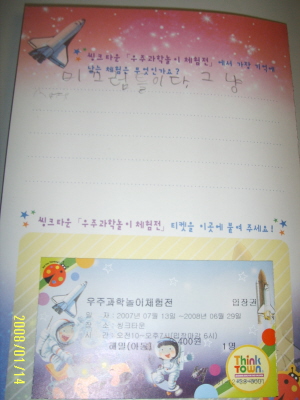 씽크타운 「우주과학놀이 체험전」 에서 가장 기억에
남는 체험은 무엇인가요?
미끄럼틀이다, 그냥
씽크타운 「우주과학놀이 체험전」 티켓을 이곳에 붙여 주세요!
우주과학놀이체험전 입장권
일 자 : 2007년 07월 13일 ~2008년 06월 29일
장 소 : 씽크타운
시 간 : 오전10~오후7시(입장마감 6시)
400원 1명
Think
Town
2008/01/14